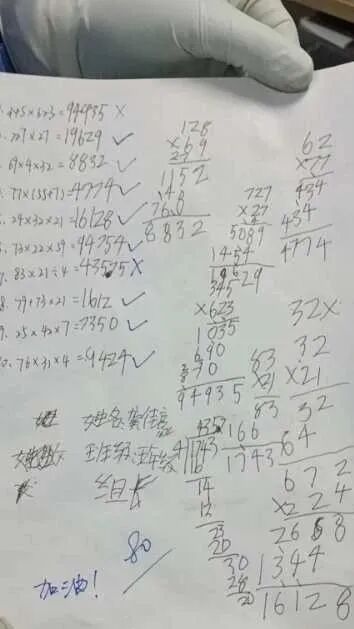 445×623=94935 ×
727×27=19629 ✓
69×4×32=8832 ✓
77×(55+7)=4774 ✓
24×32×21=16128 ✓
73×22×59=94754 ✓
7. 83×21÷4=43575 ×
8. 79+73×21=1612 ✓
9. 25×42×7=7350 ✓
0. 76×31×4=9424 ✓
128
×69
1152
768
8832
727
×27
5089
1454
19629
62
×77
434
434
4774
345
×623
1035
690
94935
83
×21
83
166
1743
32×
32
×21
32
64
672
×224
2688
1344
16128
4357
4 1743
16
14
12
23
20
30
28
20
姓名
班级
组长
80
加油!